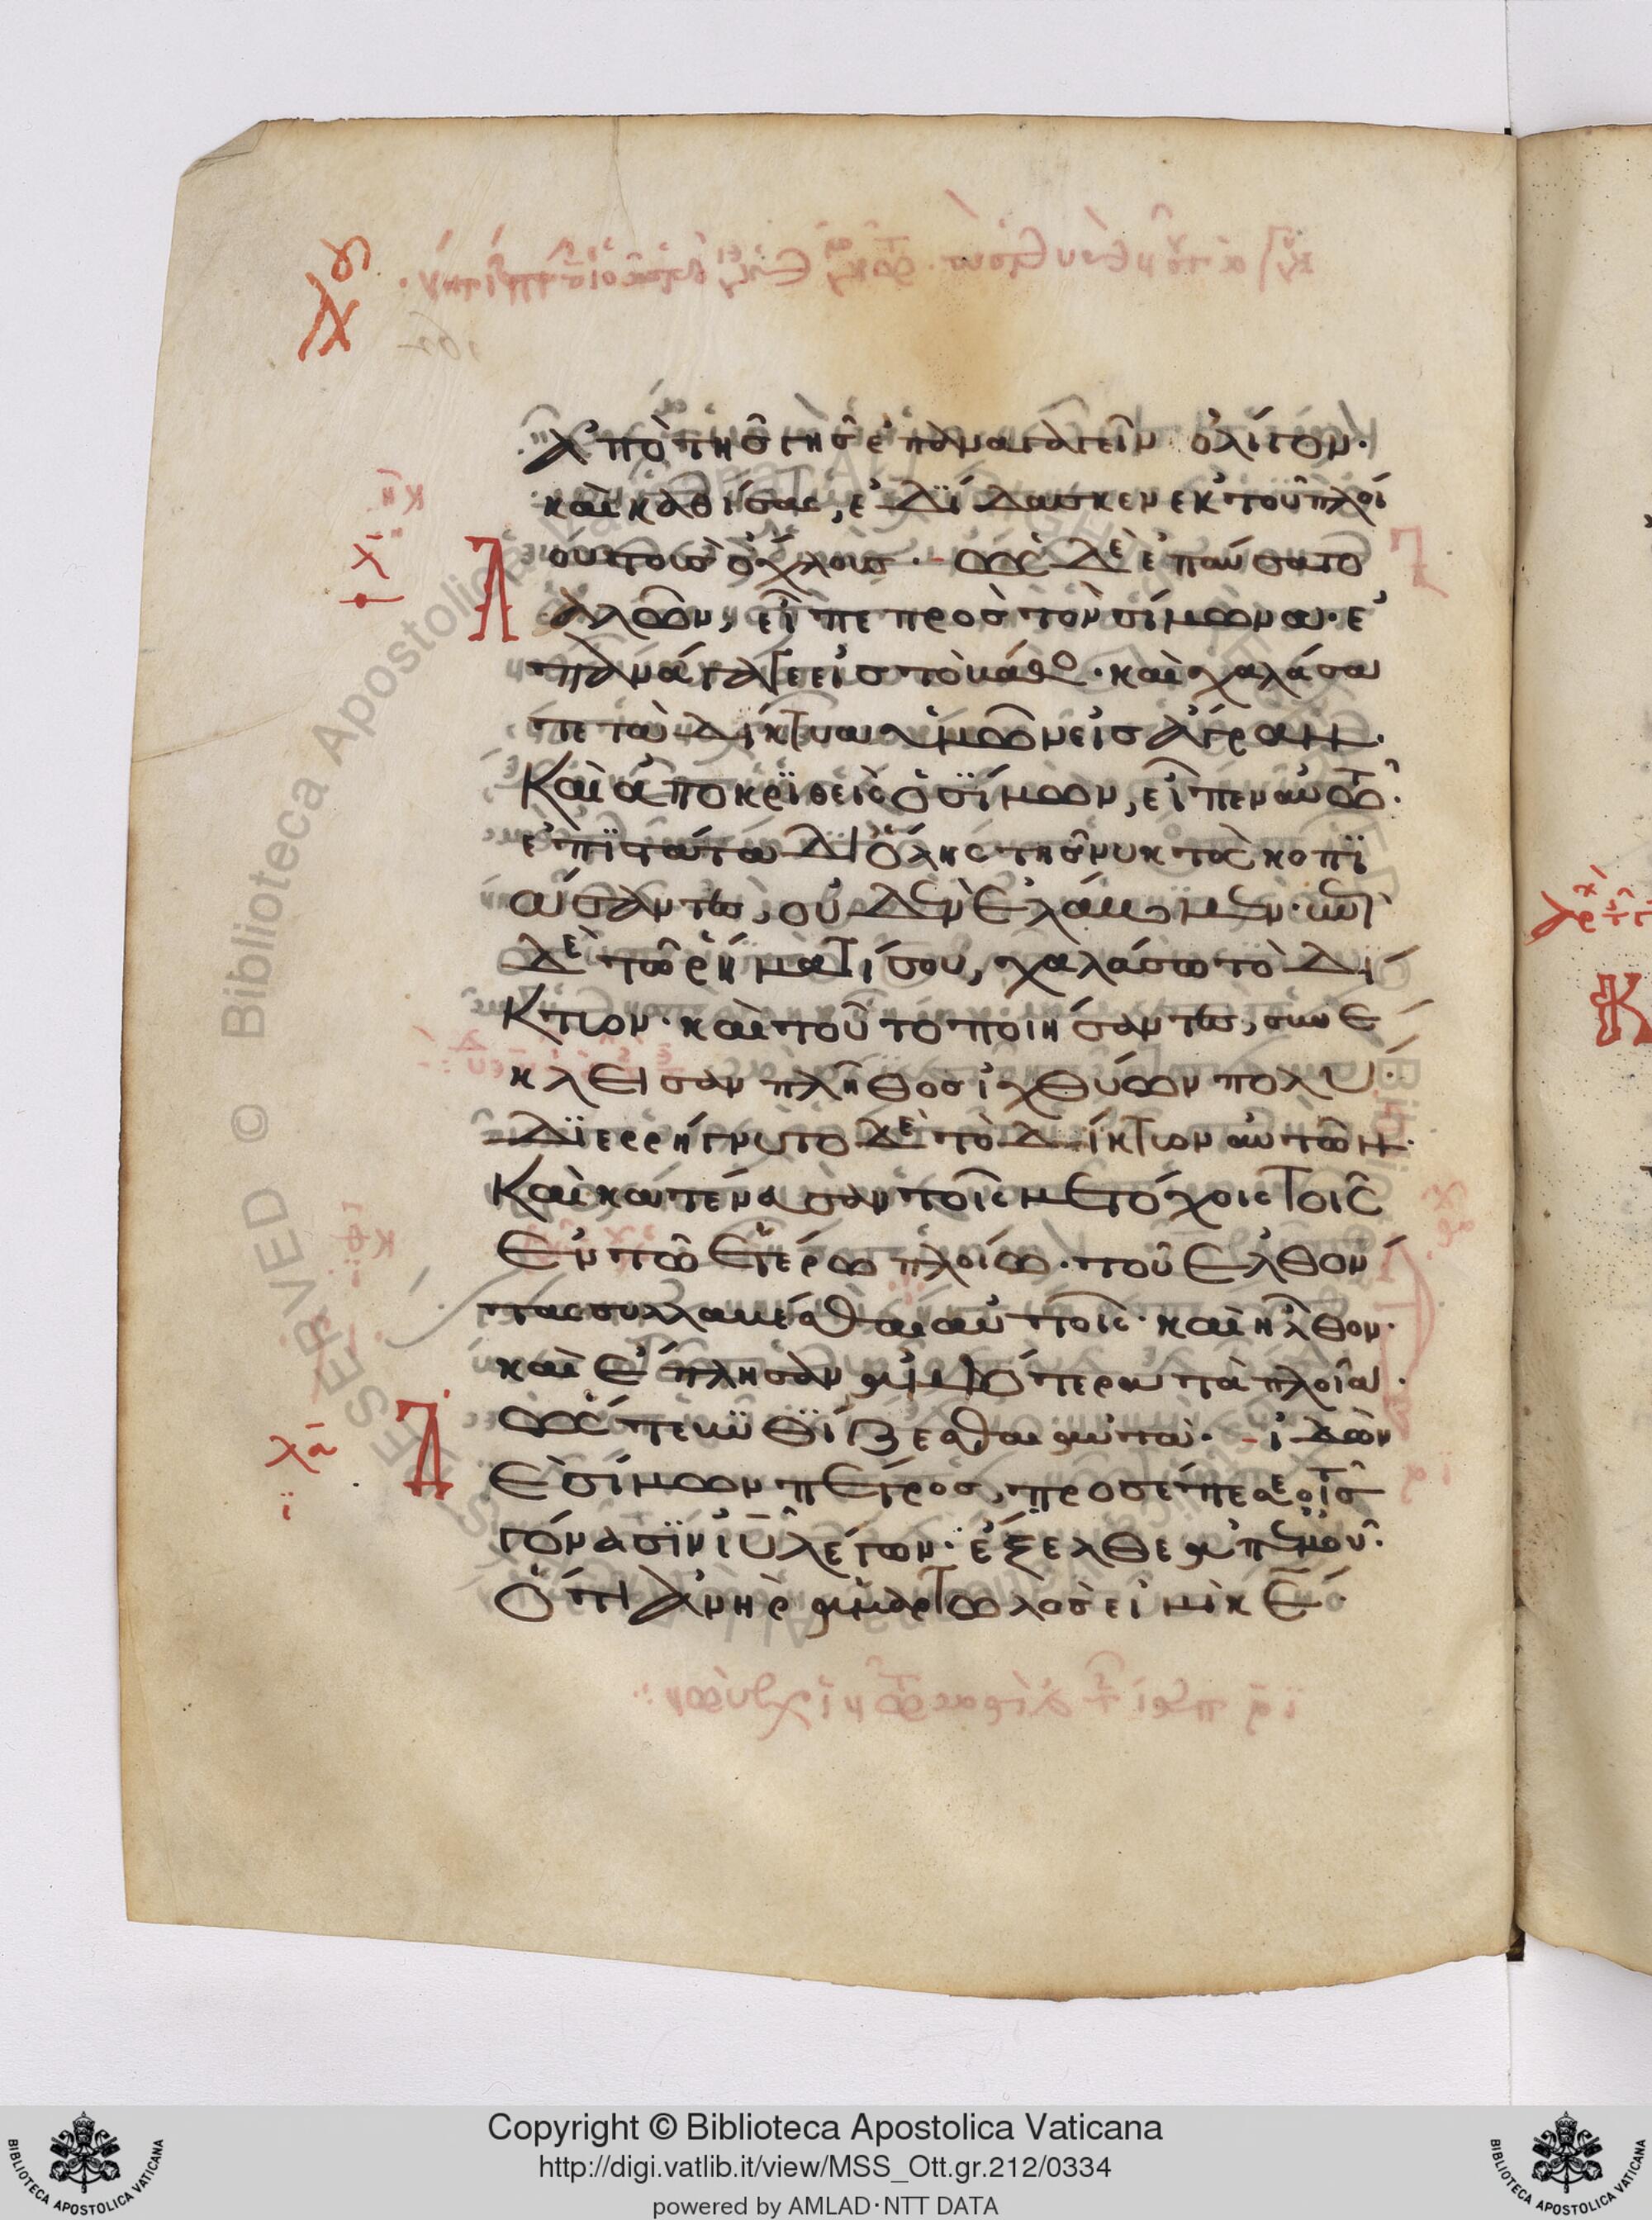 ἀπὸ τῆς γῆς ἐπαναγαγεῖν ὀλίγον·
καὶ καθίσας, ἐδίδασκεν ἐκ τοῦ πλοί
ου τοὺς ὄχλους· ὡς δὲ ἐπαύσατο
λαλῶν, εἶπε πρὸς τὸν σίμωνα· ἐ
πανάγαγε εἰς τὸ βάθος· καὶ χαλάσα
τε τὰ δίκτυα ὑμῶν εἰς ἄγραν·
Καὶ ἀποκριθεὶς ὁ σίμων, εἶπεν αὐτῶ·
ἐπιστάτα δι ὅλης τῆς νυκτὸς κοπι
άσαντες, οὐδὲν ἐλάβομεν· ἐπὶ
δὲ τῶ ρήματί σου, χαλάσω τὸ δί
κτυον· καὶ τοῦτο ποιήσαντες, συνέ
κλεισαν πλῆθος ἰχθύων πολύ·
διερρήγνυτο δὲ τὸ δίκτυον αὐτῶν·
Καὶ κατένευσαν τοῖς μετόχοις τοῖς
ἐν τῶ ἑτέρω πλοίω· τοῦ ἐλθόν
τας συλλαβέσθαι αὐτοῖς· καὶ ἦλθον·
καὶ ἔπλησαν ἀμφότερα τὰ πλοῖα·
ὥστε βυθίζεσθαι αὐτά· ἰδὼν
δὲ σίμων πέτρος, προσέπεσε τοῖς
γόνασιν ιυ λέγων· ἔξελθε ἀπ ἐμοῦ·
ὅτι ἀνὴρ ἁμαρτωλός εἰμι κε·
Copyright © Biblioteca Apostolica Vaticana
http://digi.vatlib.it/view/MSS_Ott.gr.212/0334
powered by AMLAD·NTT DATA